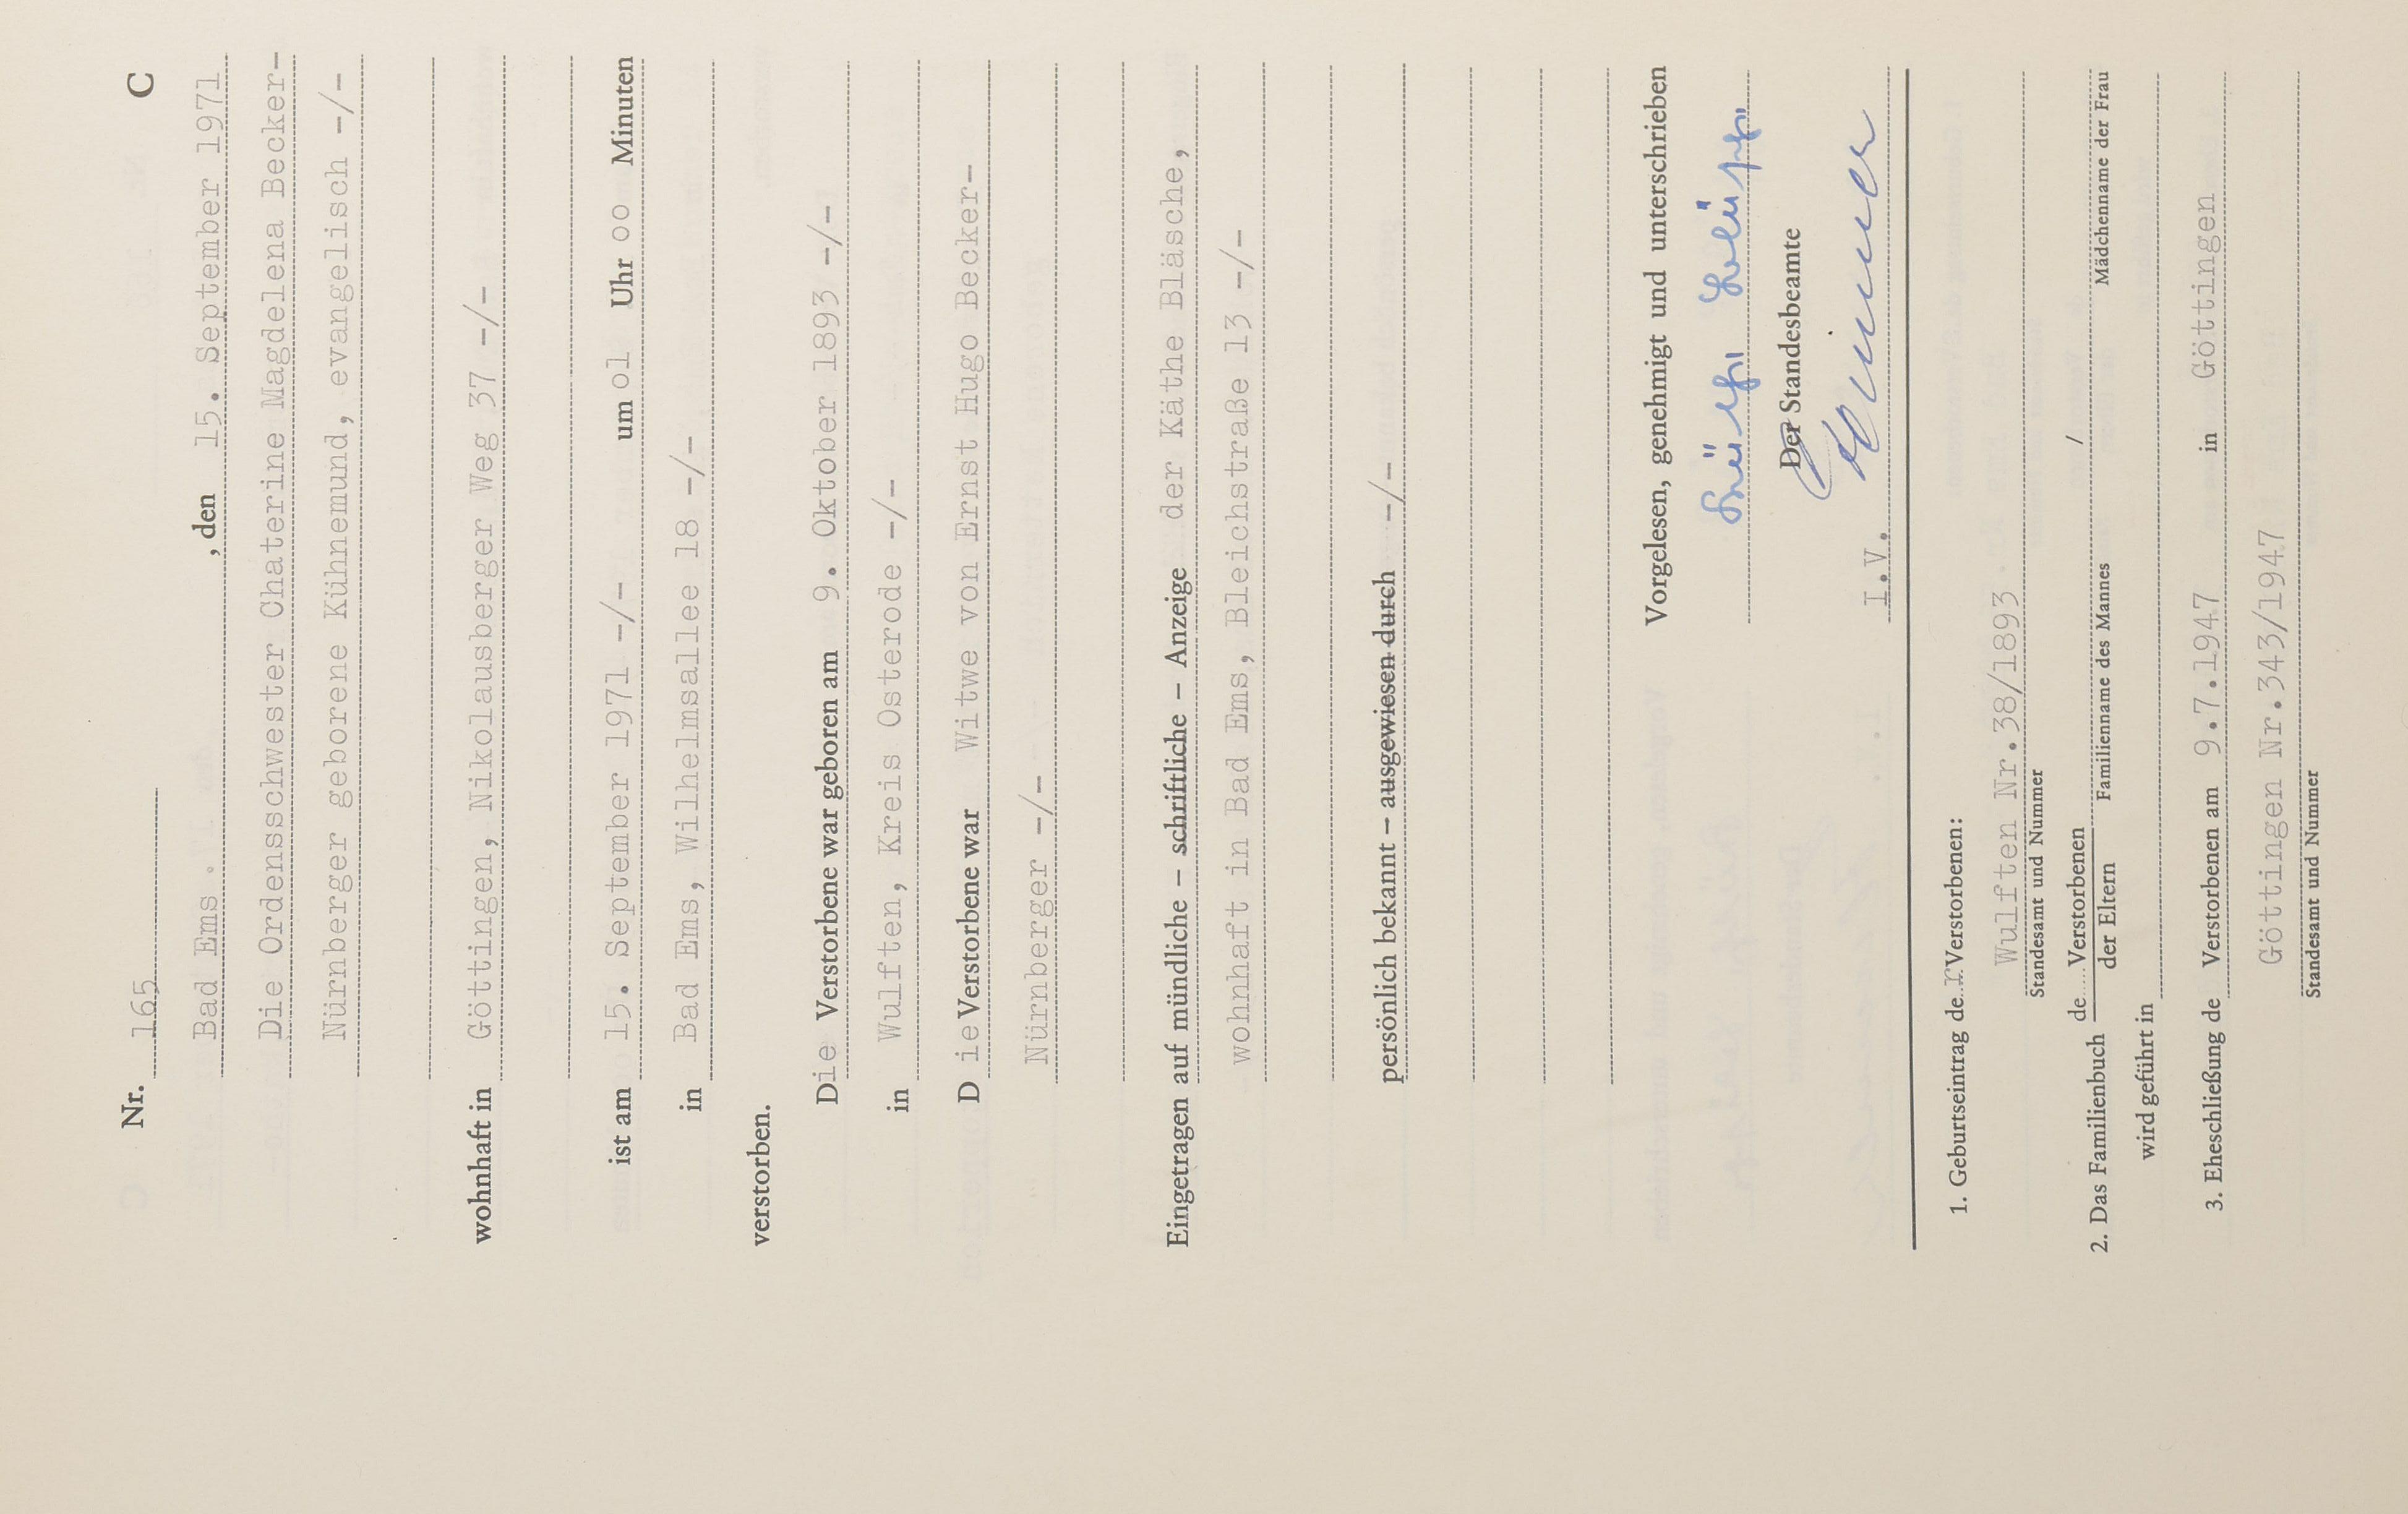 Nr. 165 C
Bad Ems , den 15. September 1971
Die Ordensschwester Chaterine Magdelena Becker-
Nürnberger geborene Kühnemund, evangelisch -/-
wohnhaft in Göttingen, Nikolausberger Weg 37 -/-
ist am 15. September 1971 -/- um o1 Uhr oo Minuten
in Bad Ems, Wilhelmsallee 18 -/-
verstorben.
Die Verstorbene war geboren am 9. Oktober 1893 -/-
in Wulften, Kreis Osterode -/-
Die Verstorbene war Witwe von Ernst Hugo Becker-
Nürnberger -/-
Eingetragen auf mündliche – schriftliche – Anzeige der Käthe Bläsche,
wohnhaft in Bad Ems, Bleichstraße 13 -/-
persönlich bekannt – ausgewiesen durch -/-
Vorgelesen, genehmigt und unterschrieben
Käthe Bläsche
Der Standesbeamte
I.V.
1. Geburtseintrag der Verstorbenen:
Wulften Nr.38/1893
Standesamt und Nummer
2. Das Familienbuch de....Verstorbenen /
der Eltern Familienname des Mannes Mädchenname der Frau
wird geführt in
3. Eheschließung de Verstorbenen am 9.7.1947 in Göttingen
Göttingen Nr.343/1947
Standesamt und Nummer